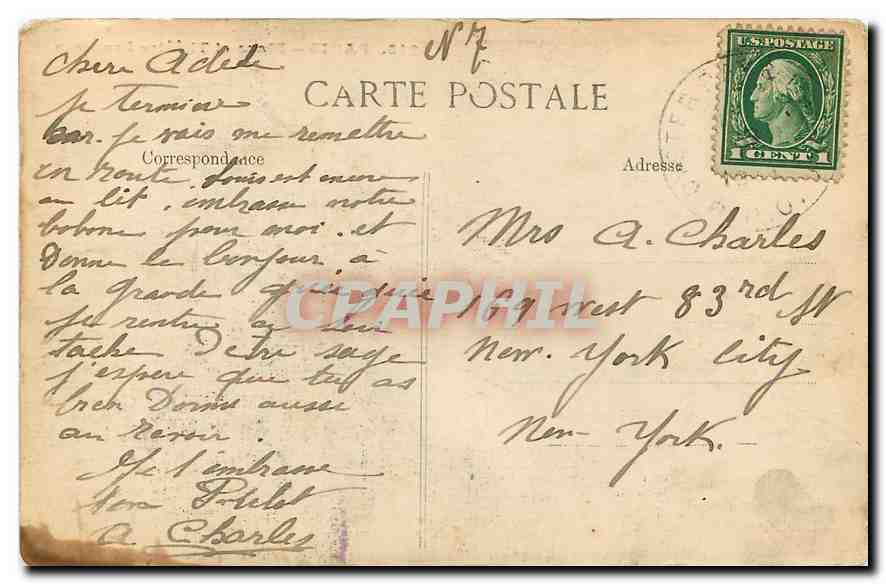 N 7
CARTE POSTALE
U.S. POSTAGE
1 CENT 1
Correspondance
Adresse
chere Adele
je termine
car je vais me remettre
en route. Louis est encore
au lit. embrasse notre
bobone pour moi. et
Donne le bonjour à
la grande
je rentre
tache Detre sage
j'espere que tu as
bien Dormi aussi
au revoir.
Je t'embrasse
ton
A Charles
Mrs A. Charles
169 West 83rd St
New. York City
New-York.
CPAPHIL